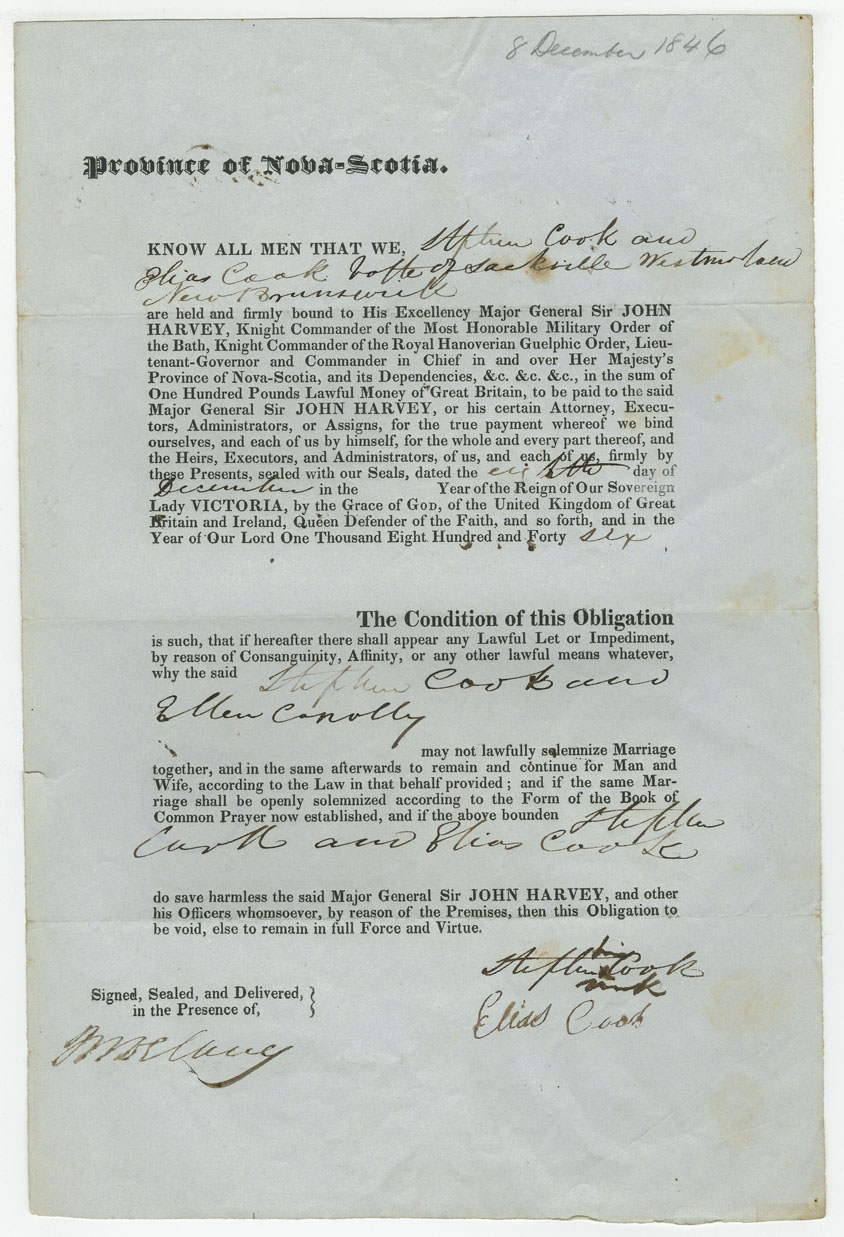 8 December 1846
Province of Nova-Scotia.
KNOW ALL MEN THAT WE, Stephen Cook and
Elias Cook both of Sackville Westmorland
New Brunswick
are held and firmly bound to His Excellency Major General Sir JOHN
HARVEY, Knight Commander of the Most Honorable Military Order of
the Bath, Knight Commander of the Royal Hanoverian Guelphic Order, Lieu-
tenant-Governor and Commander in Chief in and over Her Majesty's
Province of Nova-Scotia, and its Dependencies, &c. &c. &c., in the sum of
One Hundred Pounds Lawful Money of Great Britain, to be paid to the said
Major General Sir JOHN HARVEY, or his certain Attorney, Execu-
tors, Administrators, or Assigns, for the true payment whereof we bind
ourselves, and each of us by himself, for the whole and every part thereof, and
the Heirs, Executors, and Administrators, of us, and each of us, firmly by
these Presents, sealed with our Seals, dated the eighth day of
December in the Year of the Reign of Our Sovereign
Lady VICTORIA, by the Grace of GOD, of the United Kingdom of Great
Britain and Ireland, Queen Defender of the Faith, and so forth, and in the
Year of Our Lord One Thousand Eight Hundred and Forty six
The Condition of this Obligation
is such, that if hereafter there shall appear any Lawful Let or Impediment,
by reason of Consanguinity, Affinity, or any other lawful means whatever,
why the said Stephen Cook and
Ellen Conolly
may not lawfully solemnize Marriage
together, and in the same afterwards to remain and continue for Man and
Wife, according to the Law in that behalf provided; and if the same Mar-
riage shall be openly solemnized according to the Form of the Book of
Common Prayer now established, and if the above bounden Stephen
Cook and Elias Cook
do save harmless the said Major General Sir JOHN HARVEY, and other
his Officers whomsoever, by reason of the Premises, then this Obligation to
be void, else to remain in full Force and Virtue.
his
Stephen Cook
mark
Signed, Sealed, and Delivered,
in the Presence of,
Elias Cook